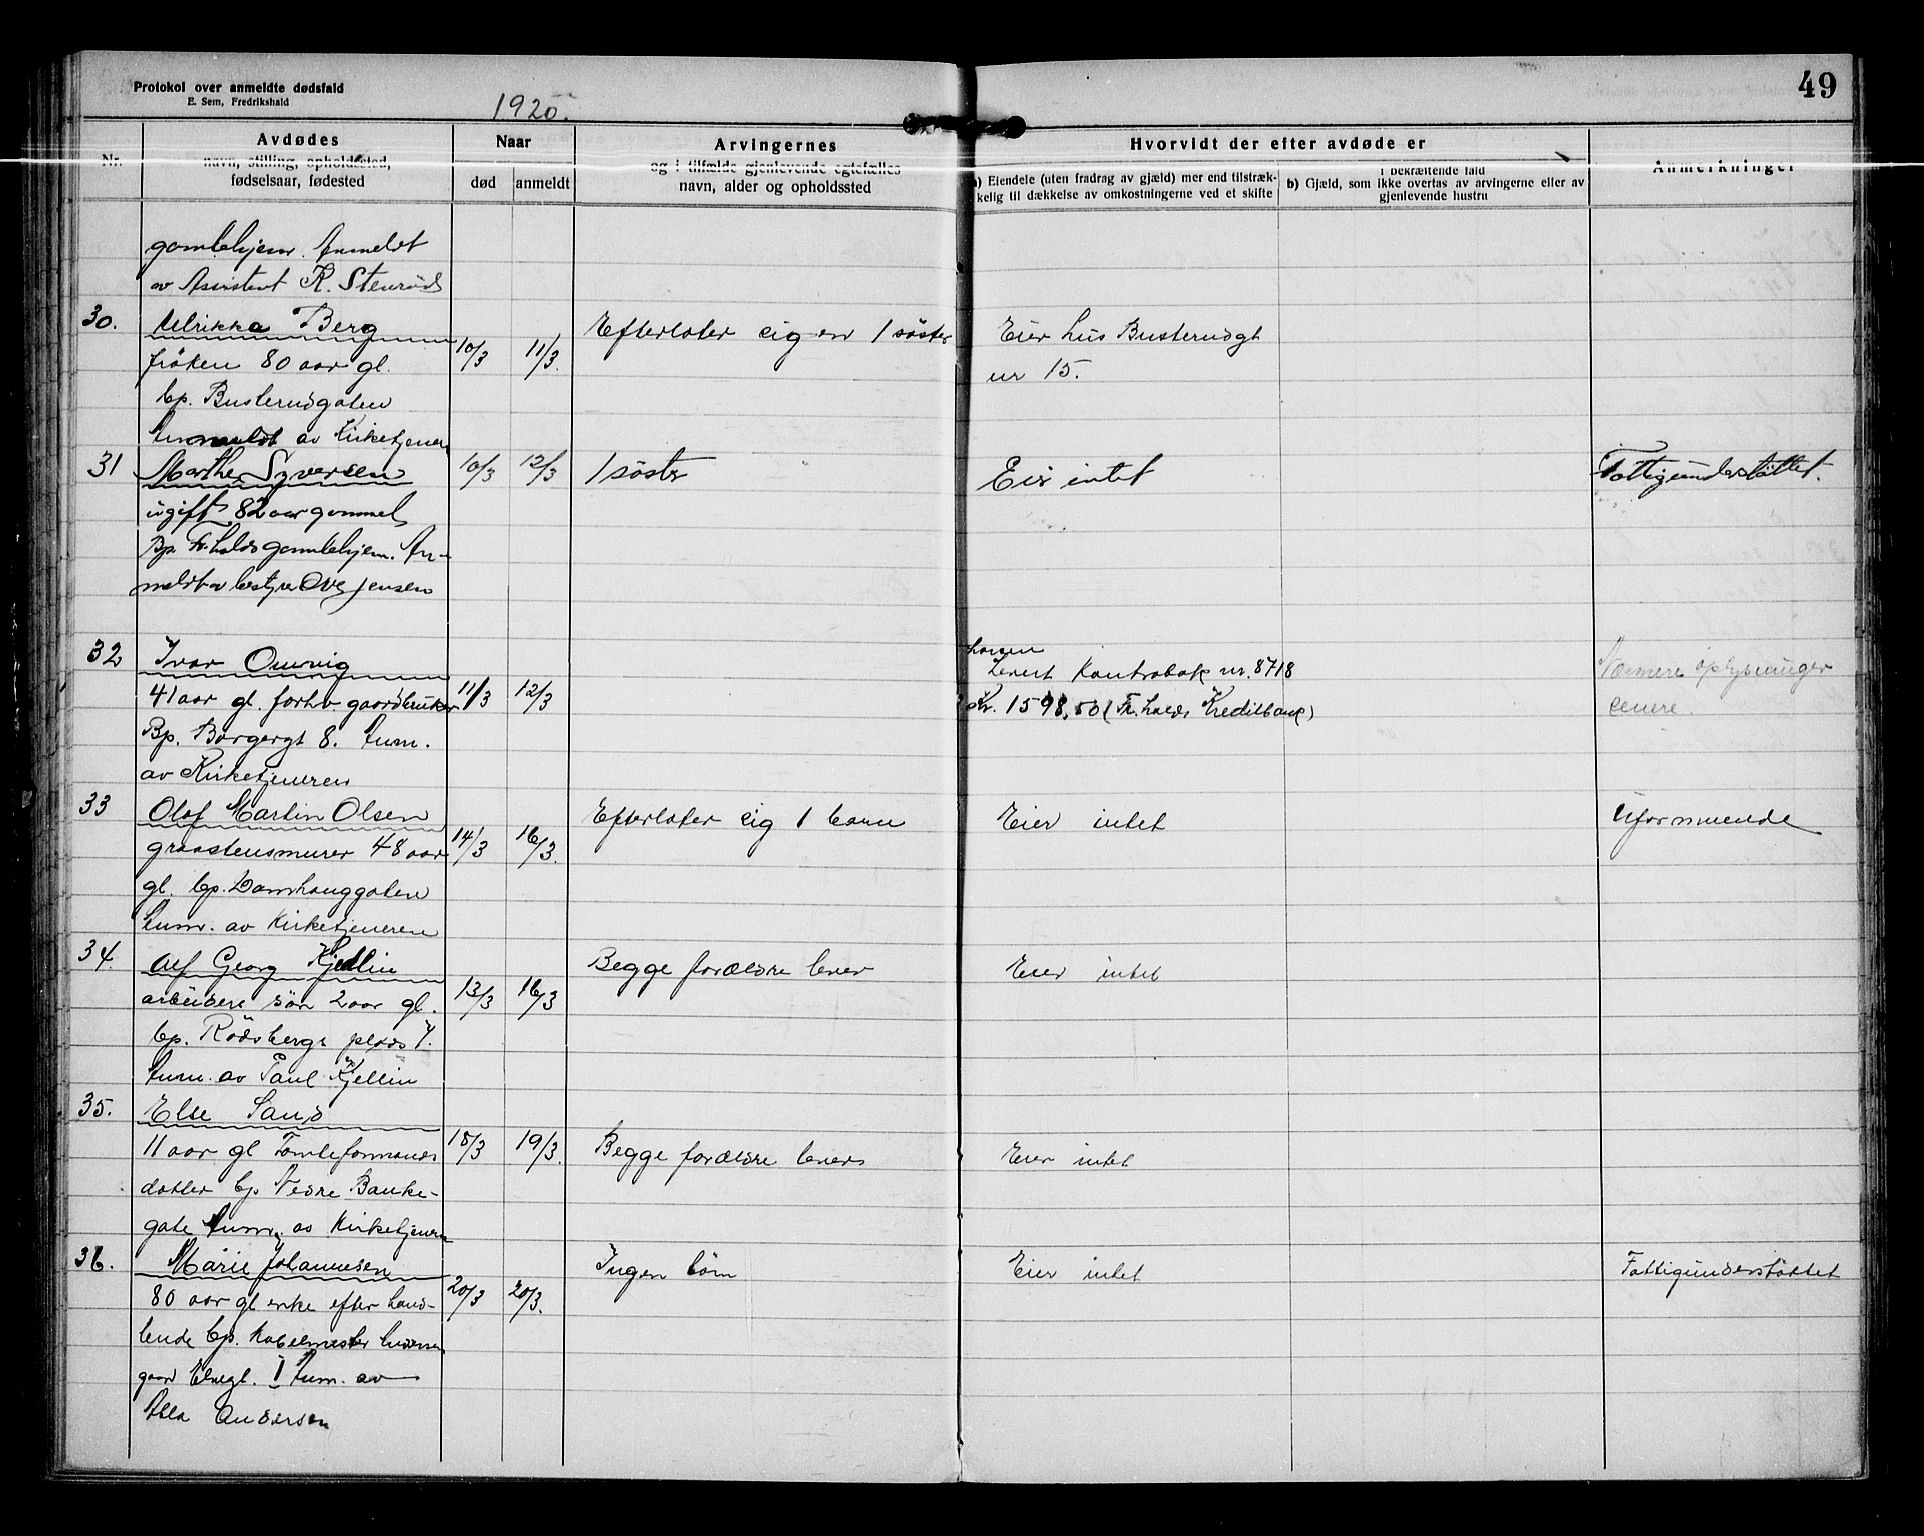 Protokol over anmeldte dødsfald
E. Sem, Fredrikshald
1920.
49
Nr.
Avdødes
navn, stilling, opholdssted,
fødselsaar, fødested
Naar
død
anmeldt
Arvingernes
og i tilfælde gjenlevende egtefælles
navn, alder og opholdssted
Hvorvidt der efter avdøde er
a) Eiendele (uten fradrag av gjæld) mer end tilstræk-
kelig til dækkelse av omkostningerne ved et skifte
I bekræftende fald
b) Gjæld, som ikke overtas av arvingerne eller av
gjenlevende hustru
Anmerkninger
gamlehjem. Anmeldt
av Assistent K. Stenrød
30.
Ulrikka Berg
frøken 80 aar gl.
bp. Busterudgaten
Anmeldt av Kirketjener
10/3
11/3.
Efterlater sig en 1 søster
Eier hus Busterudgt
nr 15.
31
Marthe Syversen
ugift 82 aar gammel
Bp. Fr.halds gamlehjem. An-
meldt av bestyrer Ove Jensen
10/3
12/3
1 søster
Eier intet
Fattigunderstøttet.
32
Ivar Omvig
41 aar gl. forhv. gaardbruker
Bp. Borgergt 8. Anm.
av Kirketjeneren
11/3
12/3
Kontrabok nr. 8718
Kr. 1598,50 (Fr.halds Kreditbank)
Nærmere oplysninger
senere.
33
Olaf Martin Olsen
graastensmurer 48 aar
gl. bp. Damhauggaten
Anm. av Kirketjeneren
14/3
16/3.
Efterlater sig 1 barn
Eier intet
Uformuende
34.
Alf Georg Kjellin
arbeidere søn 2 aar gl.
bp. Rødsbergs plads 7.
Anm. av Paul Kjellin
13/3
16/3
Begge forældre lever
Eier intet
35.
Else Sand
11 aar gl Tomteformands
datter bp Nedre Banke-
gate Anm. av Kirketjener
18/3
19/3.
Begge forældre lever
Eier intet
36.
Marie Johannesen
80 aar gl enke efter hand-
lende bp. Kabelmester Andersen
gaard Elvegt. Anm. av
Andersen
20/3
20/3.
Ingen børn
Eier intet
Fattigunderstøttet